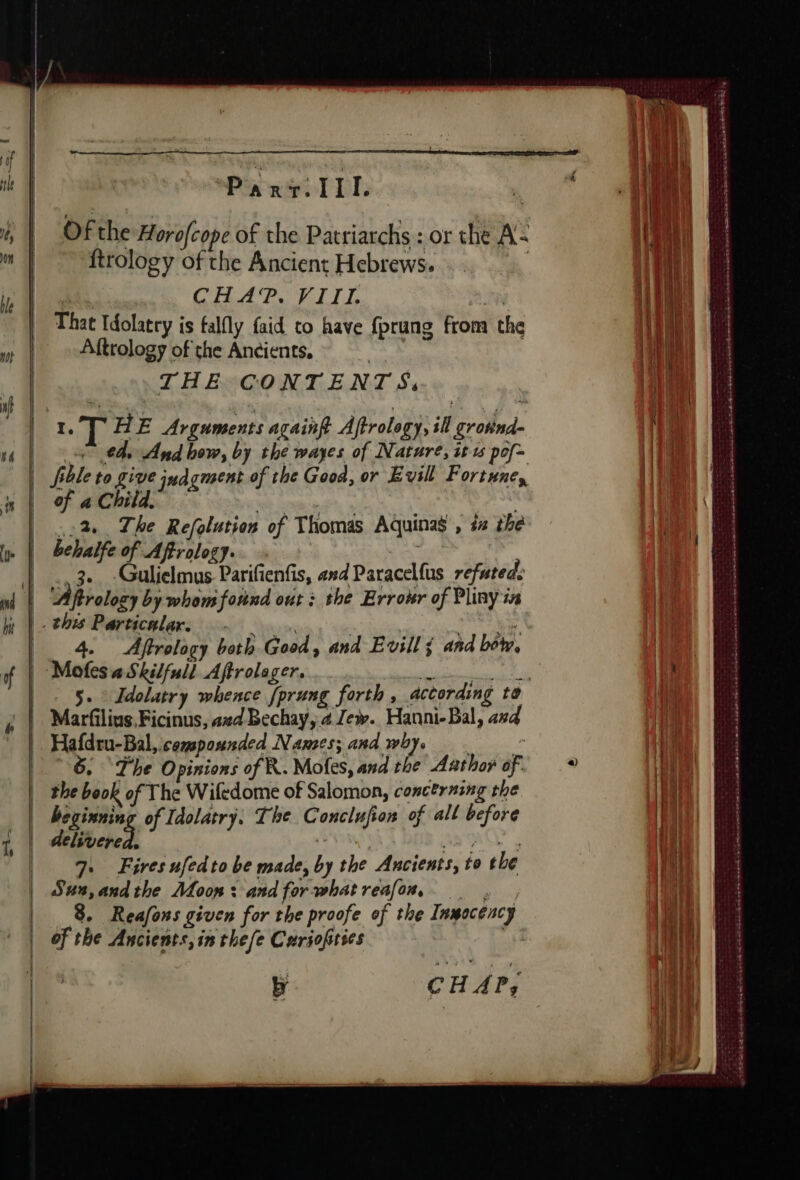 PART. III.
Of the Horoſcope of the Patriarchs : or the A-
ſtrology of the Ancient Hebrews.
CHAP. VIII.
That Idolatry is falſly ſaid to have ſprung from the
Aſtrology of the Ancients.
THE CONTENTS.
1. THE Arguments againſt Aſtrology, ill ground-
ed. And how, by the wayes of Nature, it is poſ-
ſible to give judgment of the Good, or Evill Fortune,
of a Child.
2. The Reſolution of Thomas Aquinas , in the
behalfe of Aſtrology.
3. Gulielmus Pariſienſis, and Paracelſus refuted.
Aſtrology by whom found out : the Errour of Pliny in
this Particular.
4. Aſtrology both Good, and Evill ; and how.
Moſes a Skilfull Aſtrologer.
5. Idolatry whence ſprung forth , according to
Marſilius Ficinus, and Bechay, a Jew. Hanni-Bal, and
Haſdru-Bal, compounded Names; and why.
6. The Opinions of R. Moſes, and the Author of
the book of The Wiſedome of Salomon, concerning the
beginning of Idolatry. The Concluſion of all before
delivered.
7. Fires uſed to be made, by the Ancients, to the
Sun, and the Moon : and for what reaſon.
8. Reaſons given for the proofe of the Innocency
of the Ancients, in theſe Curioſities
CHAP,